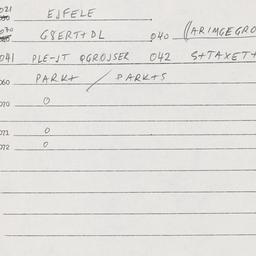 021 EJFELE
070 G8ERT+DL 040 (ARIMGEGRO
041 PLE-JT QGROJSER 042 S+TAXET+
060 PARK+ / PARK+S
070 0
071 0
072 0